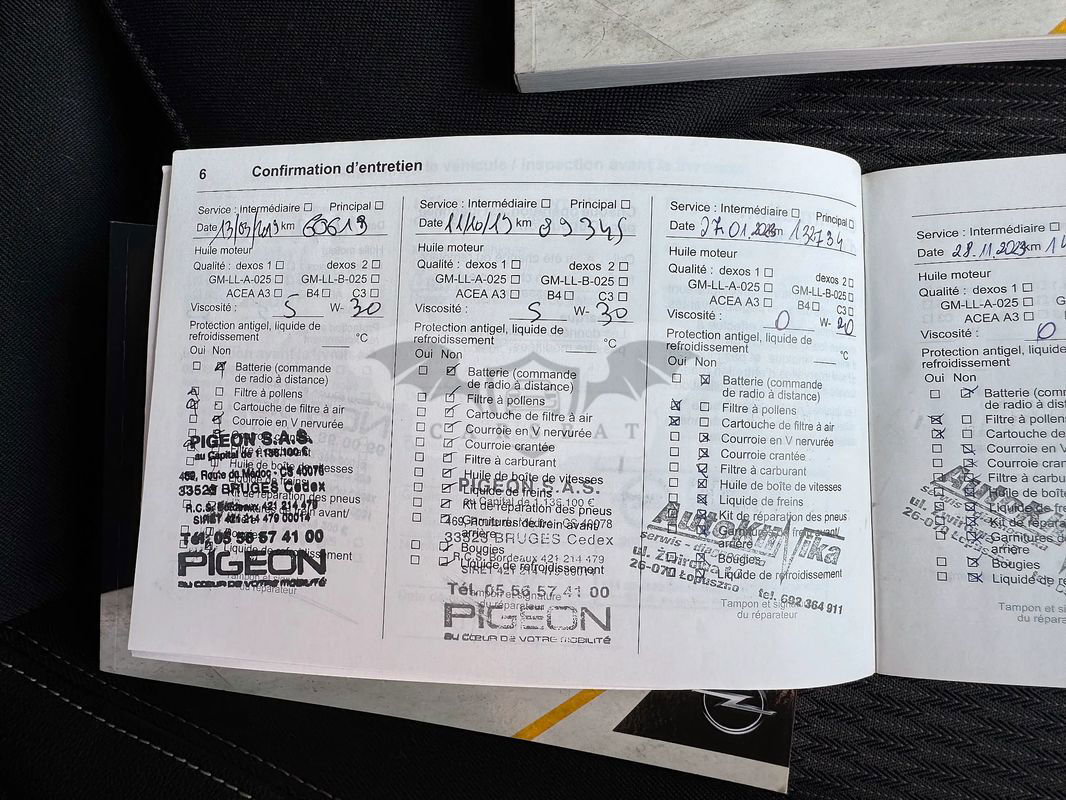 6 Confirmation d'entretien
Service : Intermédiaire Principal
Date 13/03/2019 km 60619
Huile moteur
Qualité : dexos 1 dexos 2
GM-LL-A-025 GM-LL-B-025
ACEA A3 B4 C3
Viscosité : 5 W- 30
Protection antigel, liquide de
refroidissement °C
Oui Non
Batterie (commande
de radio à distance)
Filtre à pollens
Cartouche de filtre à air
Courroie en V nervurée
Huile de boîte de vitesses
Kit de réparation des pneus
PIGEON S.A.S.
au Capital de 1.136.100 €
469, Route de Médoc - CS 40078
33523 BRUGES Cedex
R.C.S. Bordeaux 421 214 479
SIRET 421 214 479 00014
Tél. 05 56 57 41 00
PIGEON
au cœur de votre mobilité
du réparateur
Service : Intermédiaire Principal
Date 11/10/19 km 89345
Huile moteur
Qualité : dexos 1 dexos 2
GM-LL-A-025 GM-LL-B-025
ACEA A3 B4 C3
Viscosité : 5 W- 30
Protection antigel, liquide de
refroidissement °C
Oui Non
Batterie (commande
de radio à distance)
Filtre à pollens
Cartouche de filtre à air
Courroie en V nervurée
Courroie crantée
Filtre à carburant
Huile de boîte de vitesses
Liquide de freins
Kit de réparation des pneus
Garnitures de frein avant/
arrière
Bougies
Liquide de refroidissement
PIGEON S.A.S.
au Capital de 1.136.100 €
33523 BRUGES Cedex
R.C.S. Bordeaux 421 214 479
Tél. 05 56 57 41 00
Tampon et signature
du réparateur
PIGEON
au cœur de votre mobilité
Service : Intermédiaire Principal
Date 27.01.2023 km 132734
Huile moteur
Qualité : dexos 1 dexos 2
GM-LL-A-025 GM-LL-B-025
ACEA A3 B4 C3
Viscosité : 0 W- 20
Protection antigel, liquide de
refroidissement °C
Oui Non
Batterie (commande
de radio à distance)
Filtre à pollens
Cartouche de filtre à air
Courroie en V nervurée
Courroie crantée
Filtre à carburant
Huile de boîte de vitesses
Liquide de freins
Kit de réparation des pneus
Garnitures de frein avant/
arrière
Bougies
Liquide de refroidissement
26-070 Łopuszno
tel. 692 364 911
Tampon et signature
du réparateur
Service : Intermédiaire
Date 28.11.2023 km
Huile moteur
Qualité : dexos 1
GM-LL-A-025
ACEA A3
Viscosité : 0
Protection antigel, liquide
refroidissement
Oui Non
Batterie (comm
de radio à dista
Filtre à pollens
Cartouche de
Courroie en V
Courroie cran
Filtre à carbu
Huile de boît
Liquide de
Kit de répara
Garnitures
arrière
Bougies
Liquide de re
26-070
Tampon et si
du répar